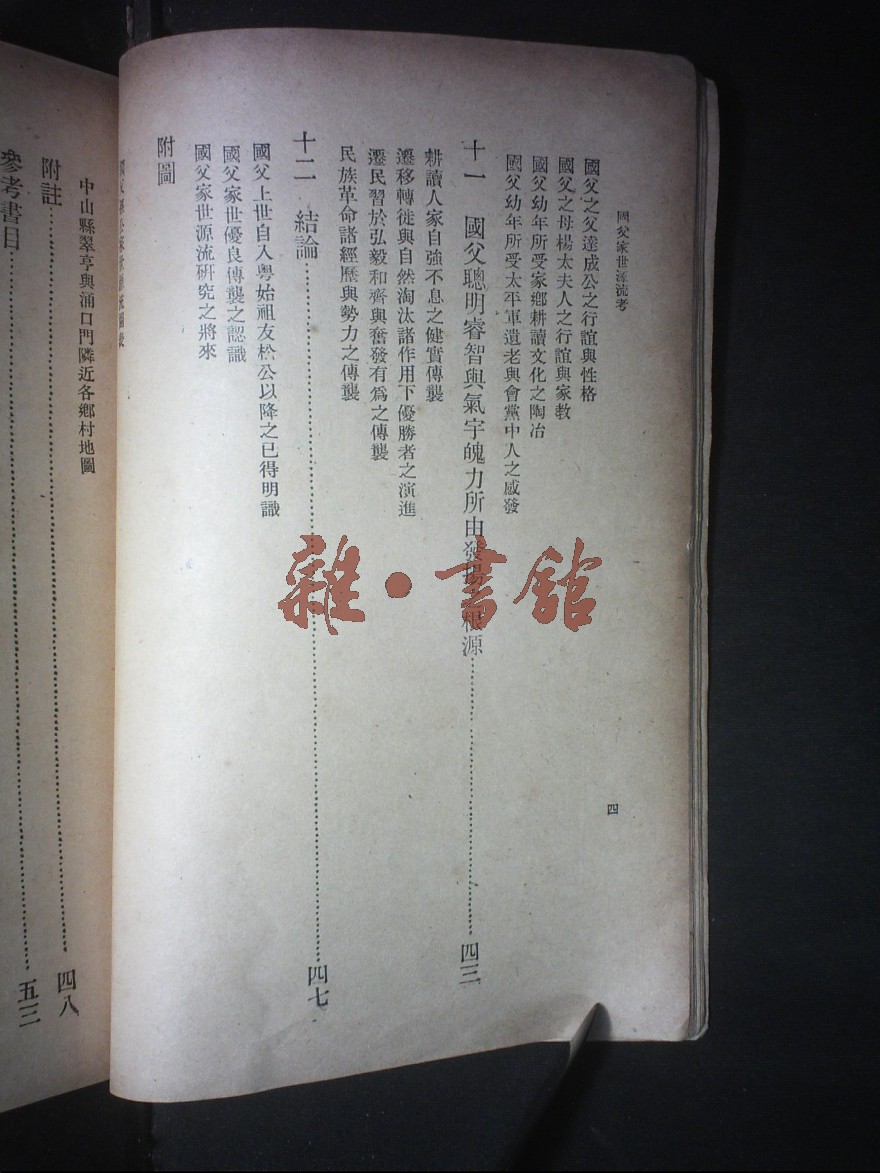 國父家世源流考
四
國父之父達成公之行誼與性格
國父之母楊太夫人之行誼與家教
國父幼年所受家鄉耕讀文化之陶冶
國父幼年所受太平軍遺老與會黨中人之感發
十一　國父聰明睿智與氣宇魄力所由發揚 根源⋯⋯四三
耕讀人家自強不息之健實傳襲
遷移轉徙與自然淘汰諸作用下優勝者之演進
遷民習於弘毅和齊與奮發有爲之傳襲
民族革命諸經歷與勢力之傳襲
十二　結論⋯⋯四七
國父上世自入粵始祖友松公以降之已得明識
國父家世優良傳襲之認識
國父家世源流研究之將來
附圖
中山縣翠亨與涌口門隣近各鄉村地圖
附註⋯⋯四八
參考書目⋯⋯五三
雜·書舘